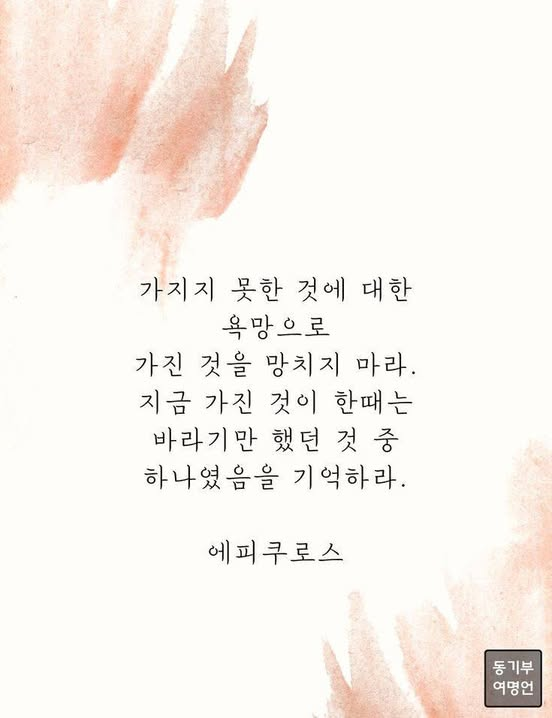 가지지 못한 것에 대한
욕망으로
가진 것을 망치지 마라.
지금 가진 것이 한때는
바라기만 했던 것 중
하나였음을 기억하라.
에피쿠로스
동기부
여명언